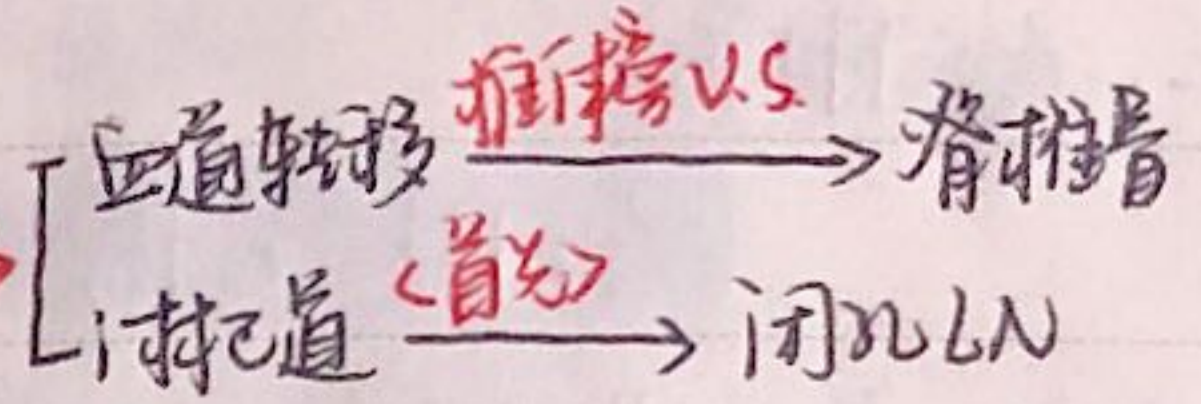 血道转移 椎体旁V.S. → 脊椎骨
淋巴道 <首先> → 闭孔LN